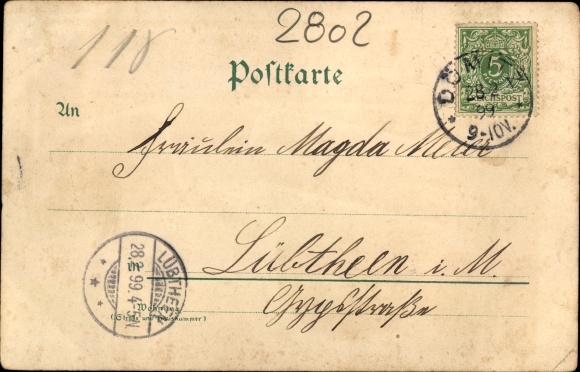 2802
118
Postkarte
5
REICHSPOST
DÖMITZ
28.2
99
9-10V.
An
Fräulein Magda Meier
Lübtheen i. M.
Gypsstraße
LÜBTHEEN
28.2.99.4-5N
in
Wohnung
(Straße und Hausnummer)